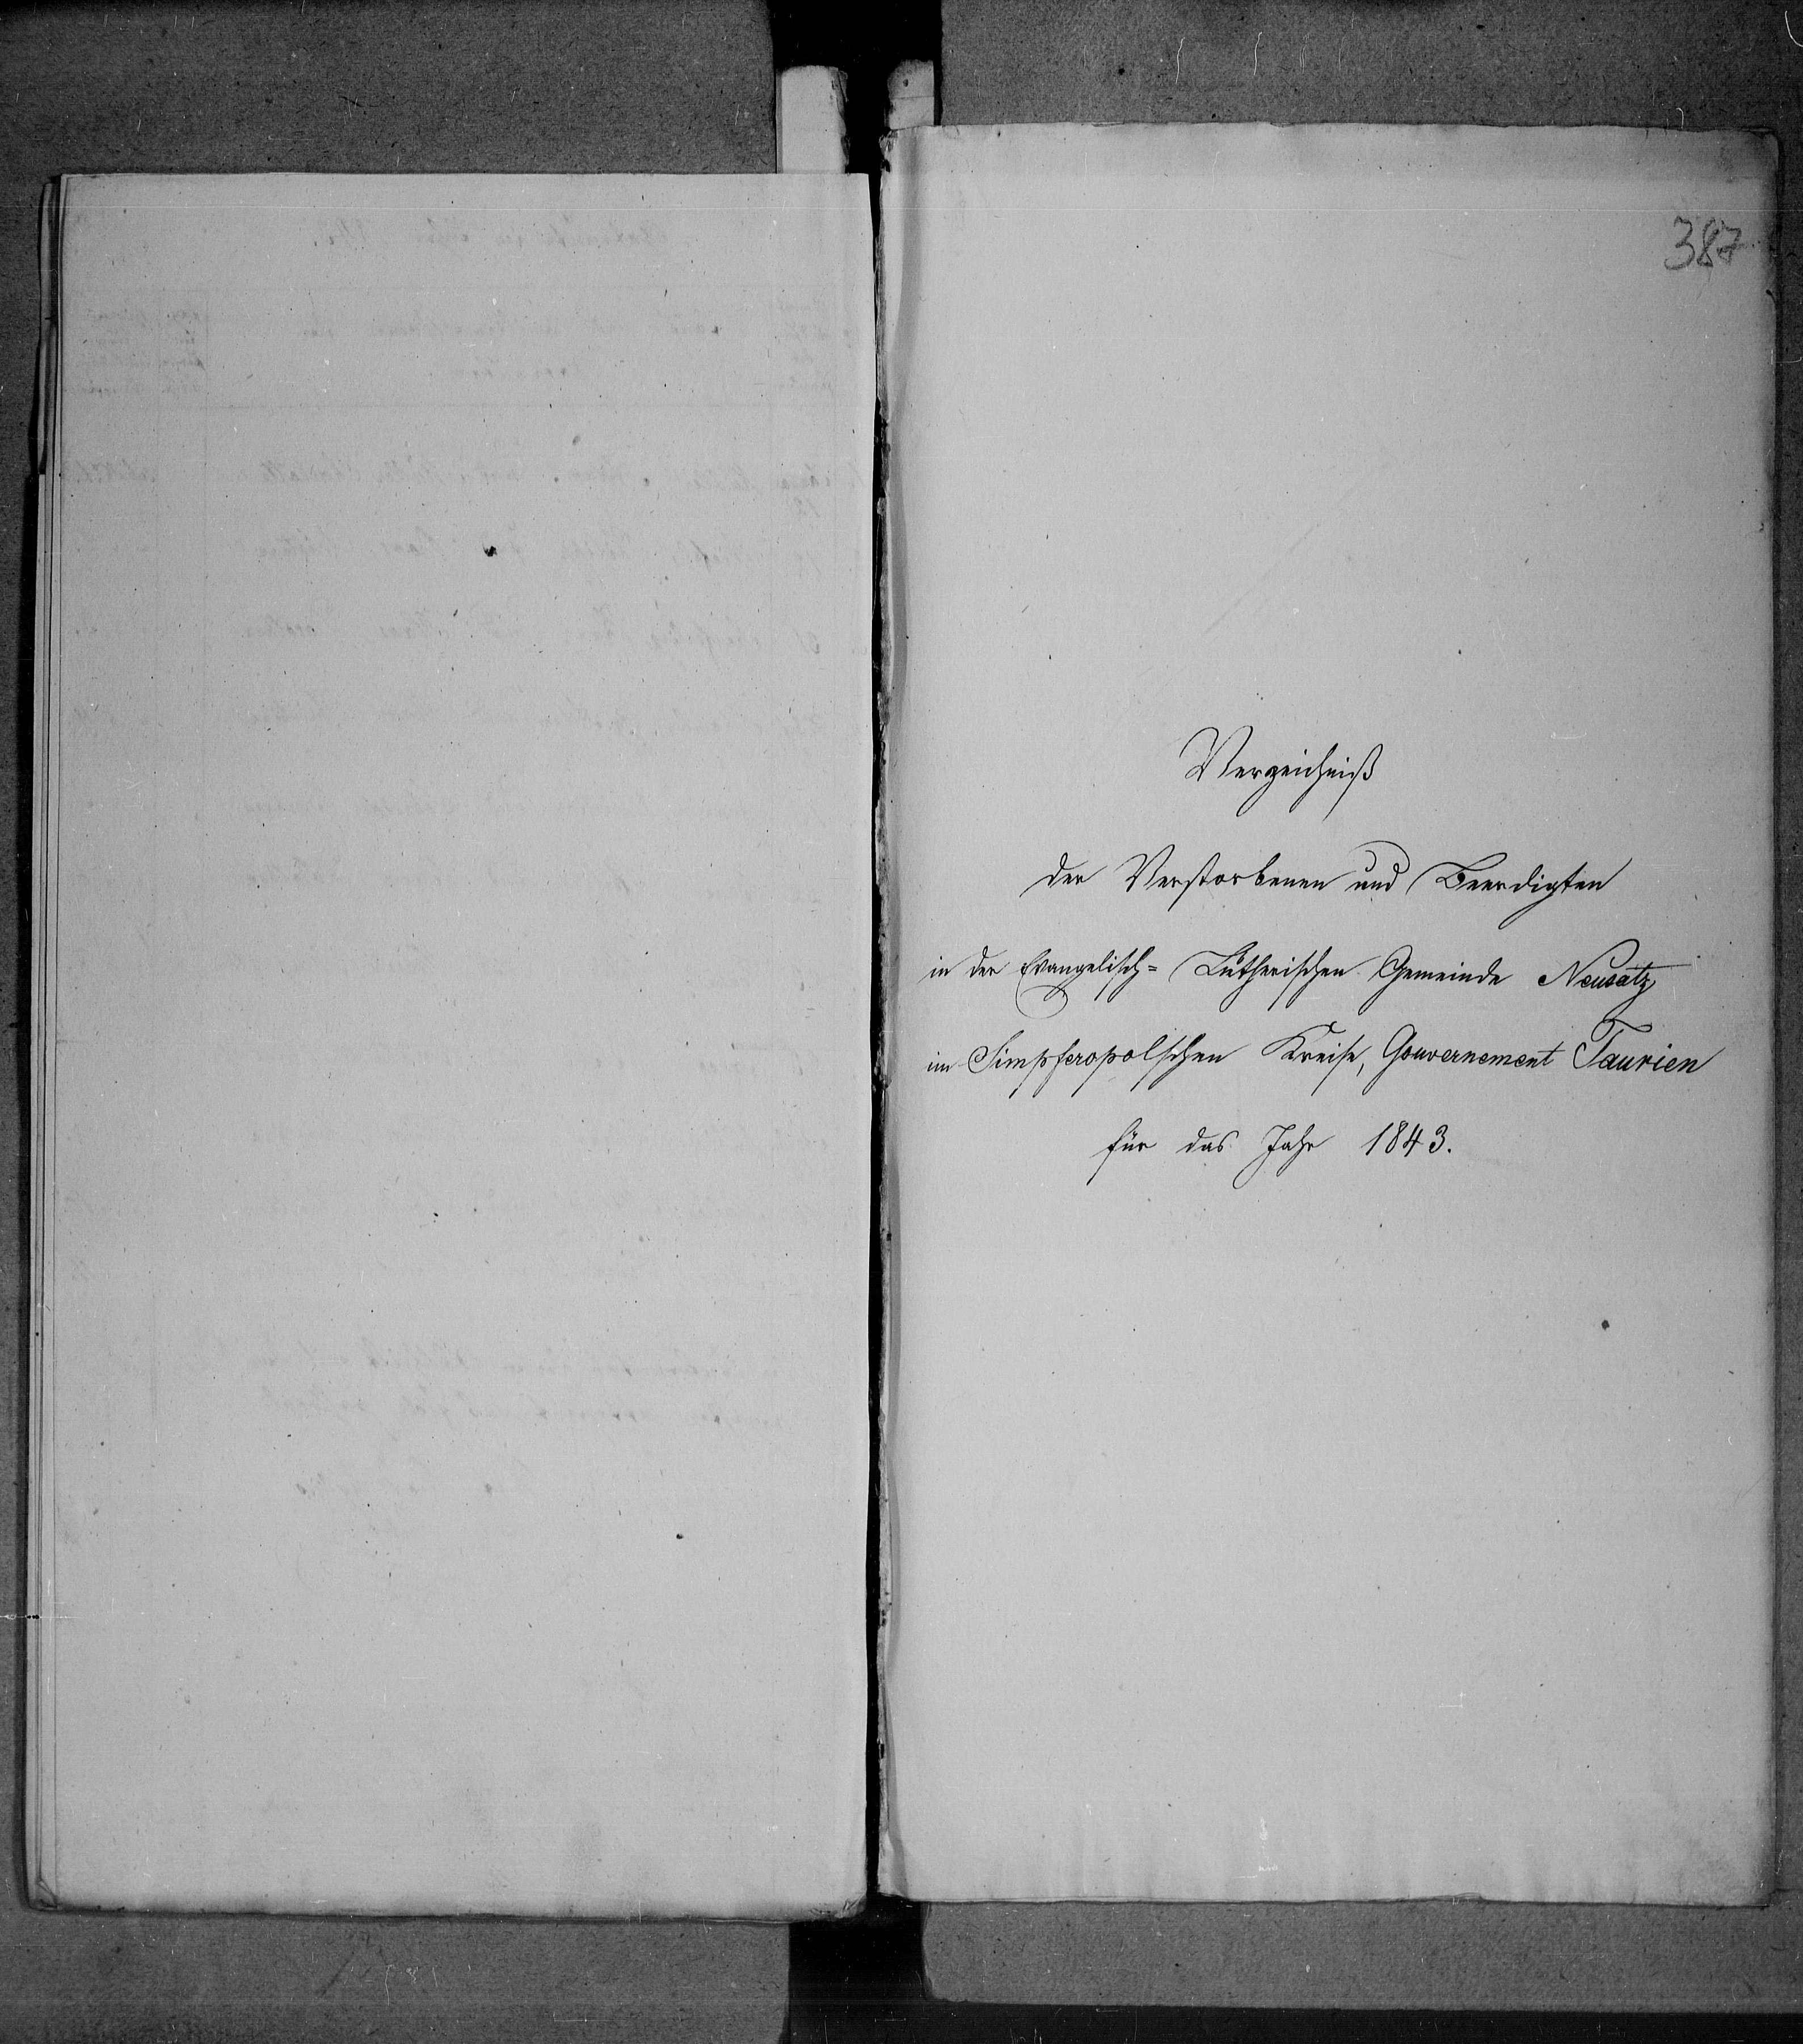 387
Verzeichniß
der Verstorbenen und Beerdigten
in der Evangelisch= Lutherischen Gemeinde Neusatz
im Simpferopolschen Kreise, Gouvernement Taurien
für das Jahr 1843.